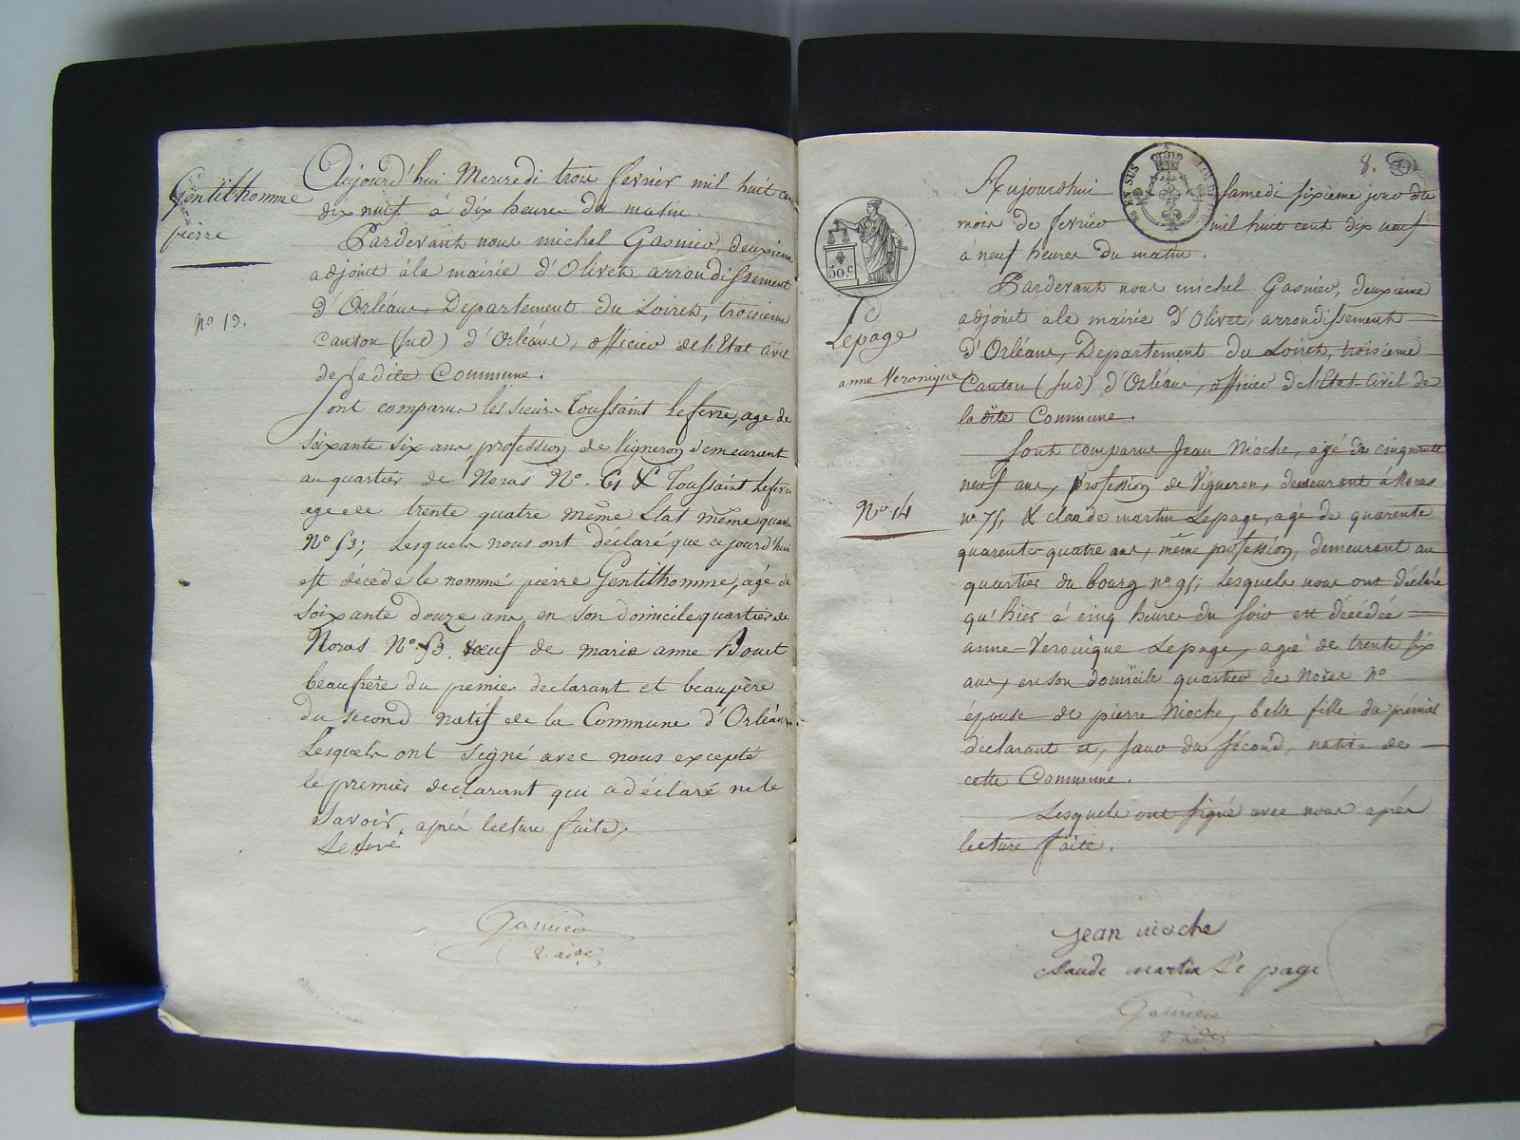 Gentilhomme
pierre
Nº 13.
Aujourd'hui Mercredi trois fevrier mil huit cen
dix neuf à dix heures du matin.
Pardevant nous michel Gasnier, deuxième
adjoint à la mairie d'Olivet arrondissement
d'Orléans, Departement du Loiret, troisieme
Canton (sud) d'Orléans, officier de l'Etat civil
de la dite Commune.
Sont comparus les sieurs Toussaint Lefevre, age de
soixante six ans, profession de Vigneron demeurant
au quartier de Noras Nº. 61 & Toussaint Lefevre
age de trente quatre même Etat même quar
Nº 53; Lesquels nous ont déclaré que ce jourd'hui
est décédé le nommé pierre Gentilhomme, agé de
soixante douze ans, en son domicile quartier de
Noras Nº 53. veuf de marie anne Bouet
beaufrère du premier declarant et beaupère
du second natif de la Commune d'Orléans.
Lesquels ont signé avec nous excepté
le premier declarant qui a déclaré ne le
savoir, après lecture faite,
Lefevre
Gasnier
8.
50 C
EN SUS
Lepage
anne Veronique
Nº 14
Aujourdhui Samedi sixieme jour du
mois de fevrier mil huit cent dix neuf
à neuf heures du matin.
Pardevant nous michel Gasnier, deuxieme
adjoint a la mairie d'Olivet, arrondissement
d'Orléans, Departement du Loiret, troisieme
Canton (sud) d'Orléans, officier de l'Etat civil de
la dite Commune.
Sont comparus Jean Nioche, agé de cinquante
neuf ans, profession de Vigneron, demeurant à Noras
nº 75, & claude martin Lepage, age de quarente
quarente quatre ans, même profession, demeurant au
quartier du bourg nº 95; Lesquels nous ont déclaré
qu'hier à cinq heures du soir est décédée
anne-Veronique Lepage, agé de trente six
ans, en son domicile quartier de Noras nº
épouse de pierre Nioche, belle fille du premier
declarant et, sœur du second, native de
cette Commune.
Lesquels ont signé avec nous après
lecture faite.
jean nioche
claude martin Le page
Gasnier